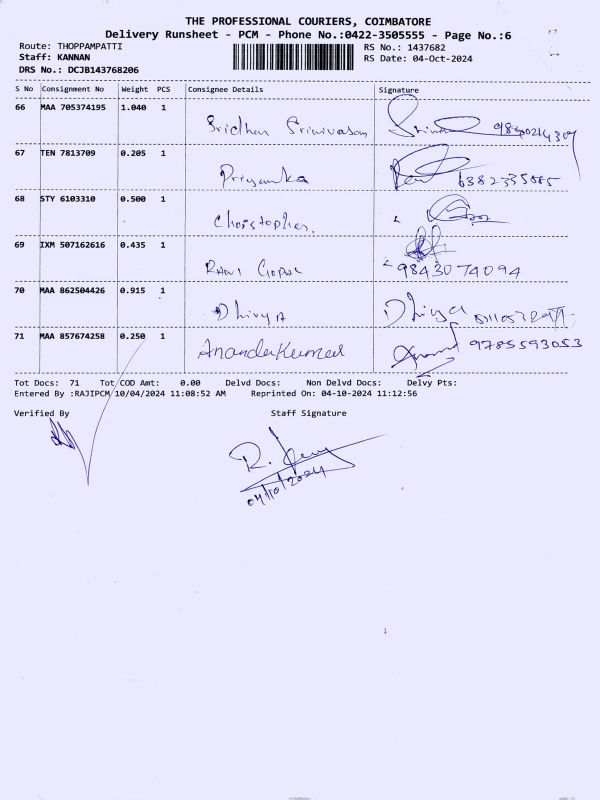 THE PROFESSIONAL COURIERS, COIMBATORE
Delivery Runsheet - PCM - Phone No.:0422-3505555 - Page No.:6
Route: THOPPAMPATTI
RS No.: 1437682
Staff: KANNAN
RS Date: 04-Oct-2024
DRS No.: DCJB143768206
S No Consignment No Weight PCS Consignee Details Signature
66 MAA 705374195 1.040 1
Sridhar Srinivasan
67 TEN 7813709 0.205 1
Priyanka
68 STY 6103310 0.500 1
Christopher.
69 IXM 507162616 0.435 1
Ravi Gopal 9843074094
70 MAA 862504426 0.915 1
Dhivya Dhivya
71 MAA 857674258 0.250 1
Anandakumar Anand 9785593053
Tot Docs: 71 Tot COD Amt: 0.00 Delvd Docs: Non Delvd Docs: Delvy Pts:
Entered By :RAJIPCM 10/04/2024 11:08:52 AM Reprinted On: 04-10-2024 11:12:56
Verified By Staff Signature
04/10/2024